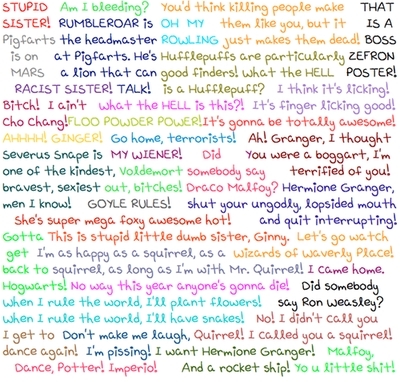 STUPID Am I bleeding? You'd think killing people make THAT
SISTER! RUMBLEROAR is OH MY them like you, but it IS A
Pigfarts the headmaster ROWLING just makes them dead! BOSS
is on at Pigfarts. He's Hufflepuffs are particularly ZEFRON
MARS a lion that can good finders! what the HELL POSTER!
RACIST SISTER! TALK! is a Hufflepuff? I think it's licking!
Bitch! I ain't what the HELL is this?! It's finger licking good!
Cho Chang! FLOO POWDER POWER! It's gonna be totally awesome!
AHHHH! GINGER! Go home, terrorists! Ah! Granger, I thought
Severus Snape is MY WIENER! Did You were a boggart, I'm
one of the kindest, Voldemort somebody say terrified of you!
bravest, sexiest out, bitches! Draco Malfoy? Hermione Granger,
men I know! GOYLE RULES! shut your ungodly, lopsided mouth
She's super mega foxy awesome hot! and quit interrupting!
Gotta This is stupid little dumb sister, Ginny. Let's go watch
get I'm as happy as a squirrel, as a Wizards of Waverly Place!
back to squirrel, as long as I'm with Mr. Quirrel! I came home.
Hogwarts! No way this year anyone's gonna die! Did somebody
when I rule the world, I'll plant flowers! say Ron Weasley?
when I rule the world, I'll have snakes! No! I didn't call you
I get to Don't make me laugh, Quirrel! I called you a squirrel!
dance again! I'm pissing! I want Hermione Granger! Malfoy,
Dance, Potter! Imperio! And a rocket ship! Yo u little shit!